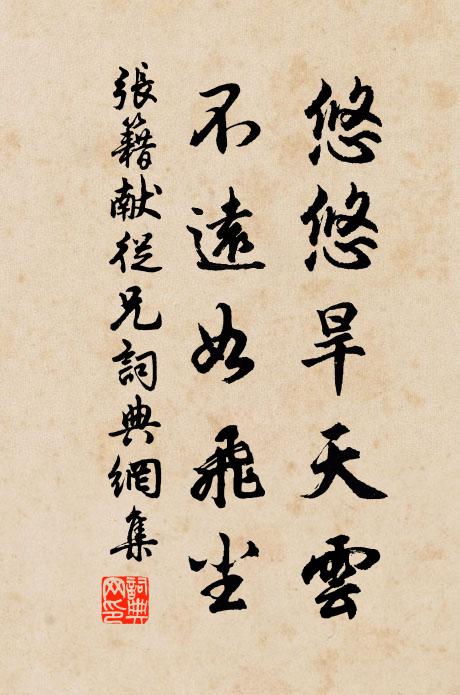 悠悠旱天雲
不遠如飛尘
張籍献從兄詞典網集
詞典網印